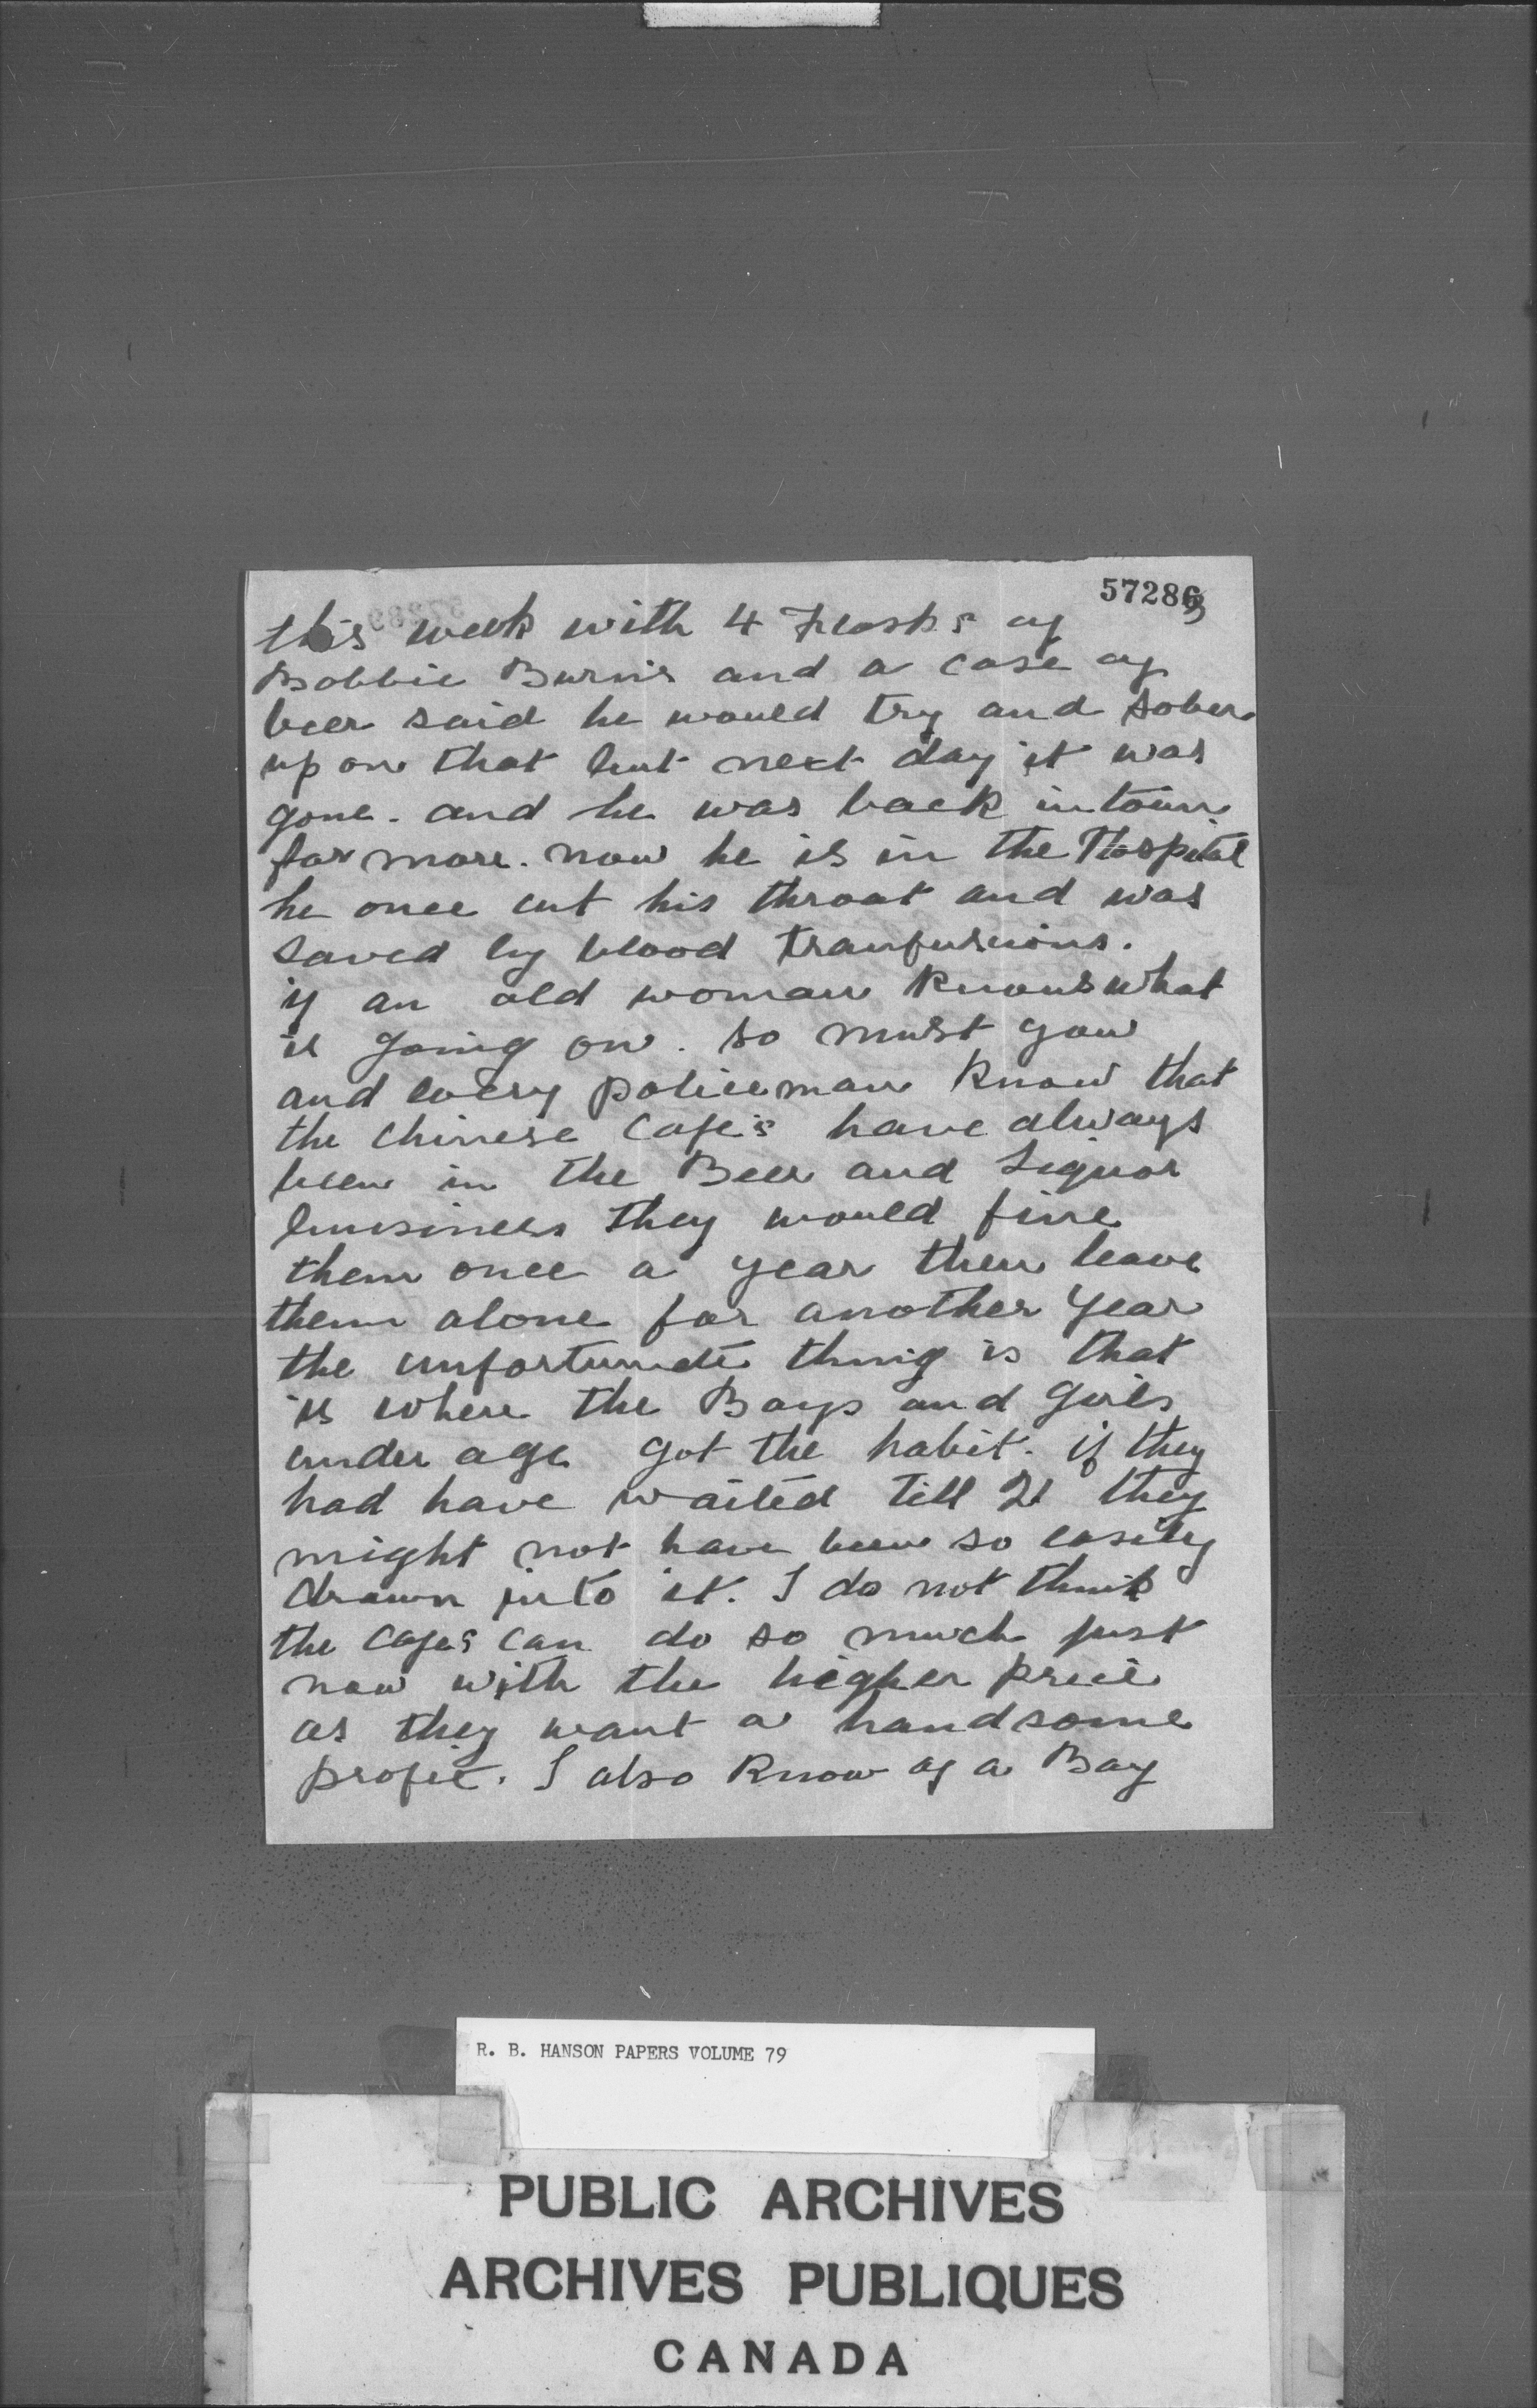 57286
this week with 4 Flasks of
Bobbie Burns and a case of
beer said he would try and sober
up on that but next day it was
gone. and he was back in town
for more. now he is in the Hospital
he once cut his throat and was
saved by blood tranfusions.
if an old woman knows what
is going on. so must you
and every policeman know that
the chinese Cafe's have always
been in the Beer and Liquor
business they would fine
them once a year then leave
them alone for another year
the unfortunate thing is that
is where the Boys and Girls
under age got the habit. if they
had have waited till 21 they
might not have been so easily
drawn into it. I do not think
the Cafes can do so much just
now with the higher price
as they want a handsome
profit. I also know of a Boy
R. B. HANSON PAPERS VOLUME 79
PUBLIC ARCHIVES
ARCHIVES PUBLIQUES
CANADA